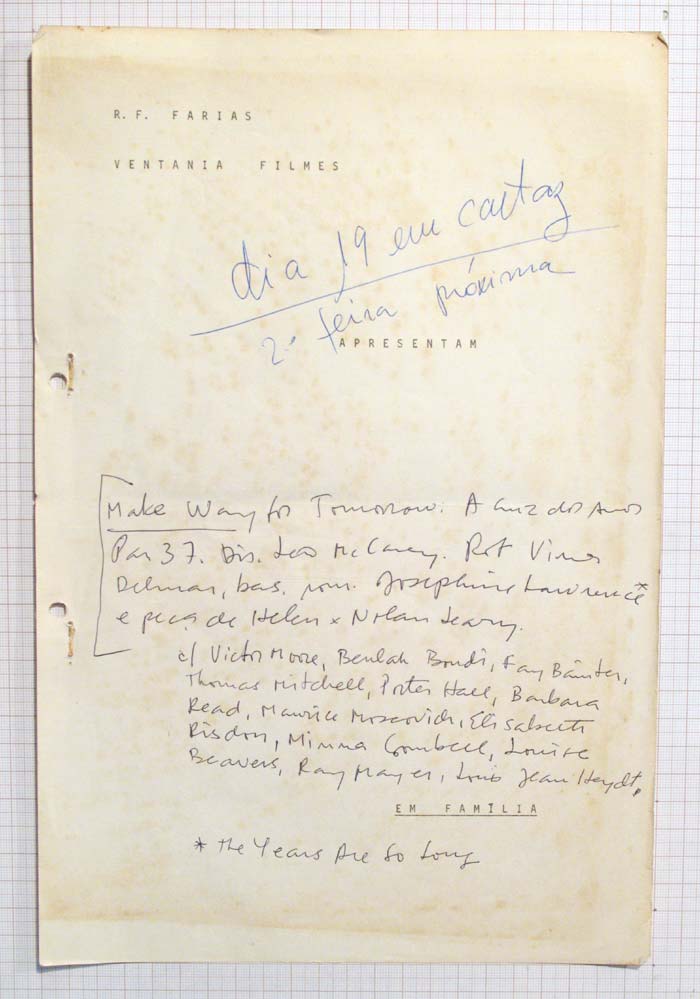 R. F. FARIAS
VENTANIA FILMES
dia 19 em cartaz
2ª feira próxima
APRESENTAM
Make Way for Tomorrow. A cruz dos Anos
Par 37. Dis. Leo McCarey. Rot Vina
Delmar, bas. rom. Josephine Lawrence*
e peça de Helen x Nolan Leary.
c/ Victor Moore, Beulah Bondi, Fay Bainter,
Thomas Mitchell, Porter Hall, Barbara
Read, Maurice Moscovich, Elisabeth
Risdon, Minna Gombell, Louise
Beavers, Ray Mayer, Louis Jean Heydt.
EM FAMÍLIA
* The Years Are So Long